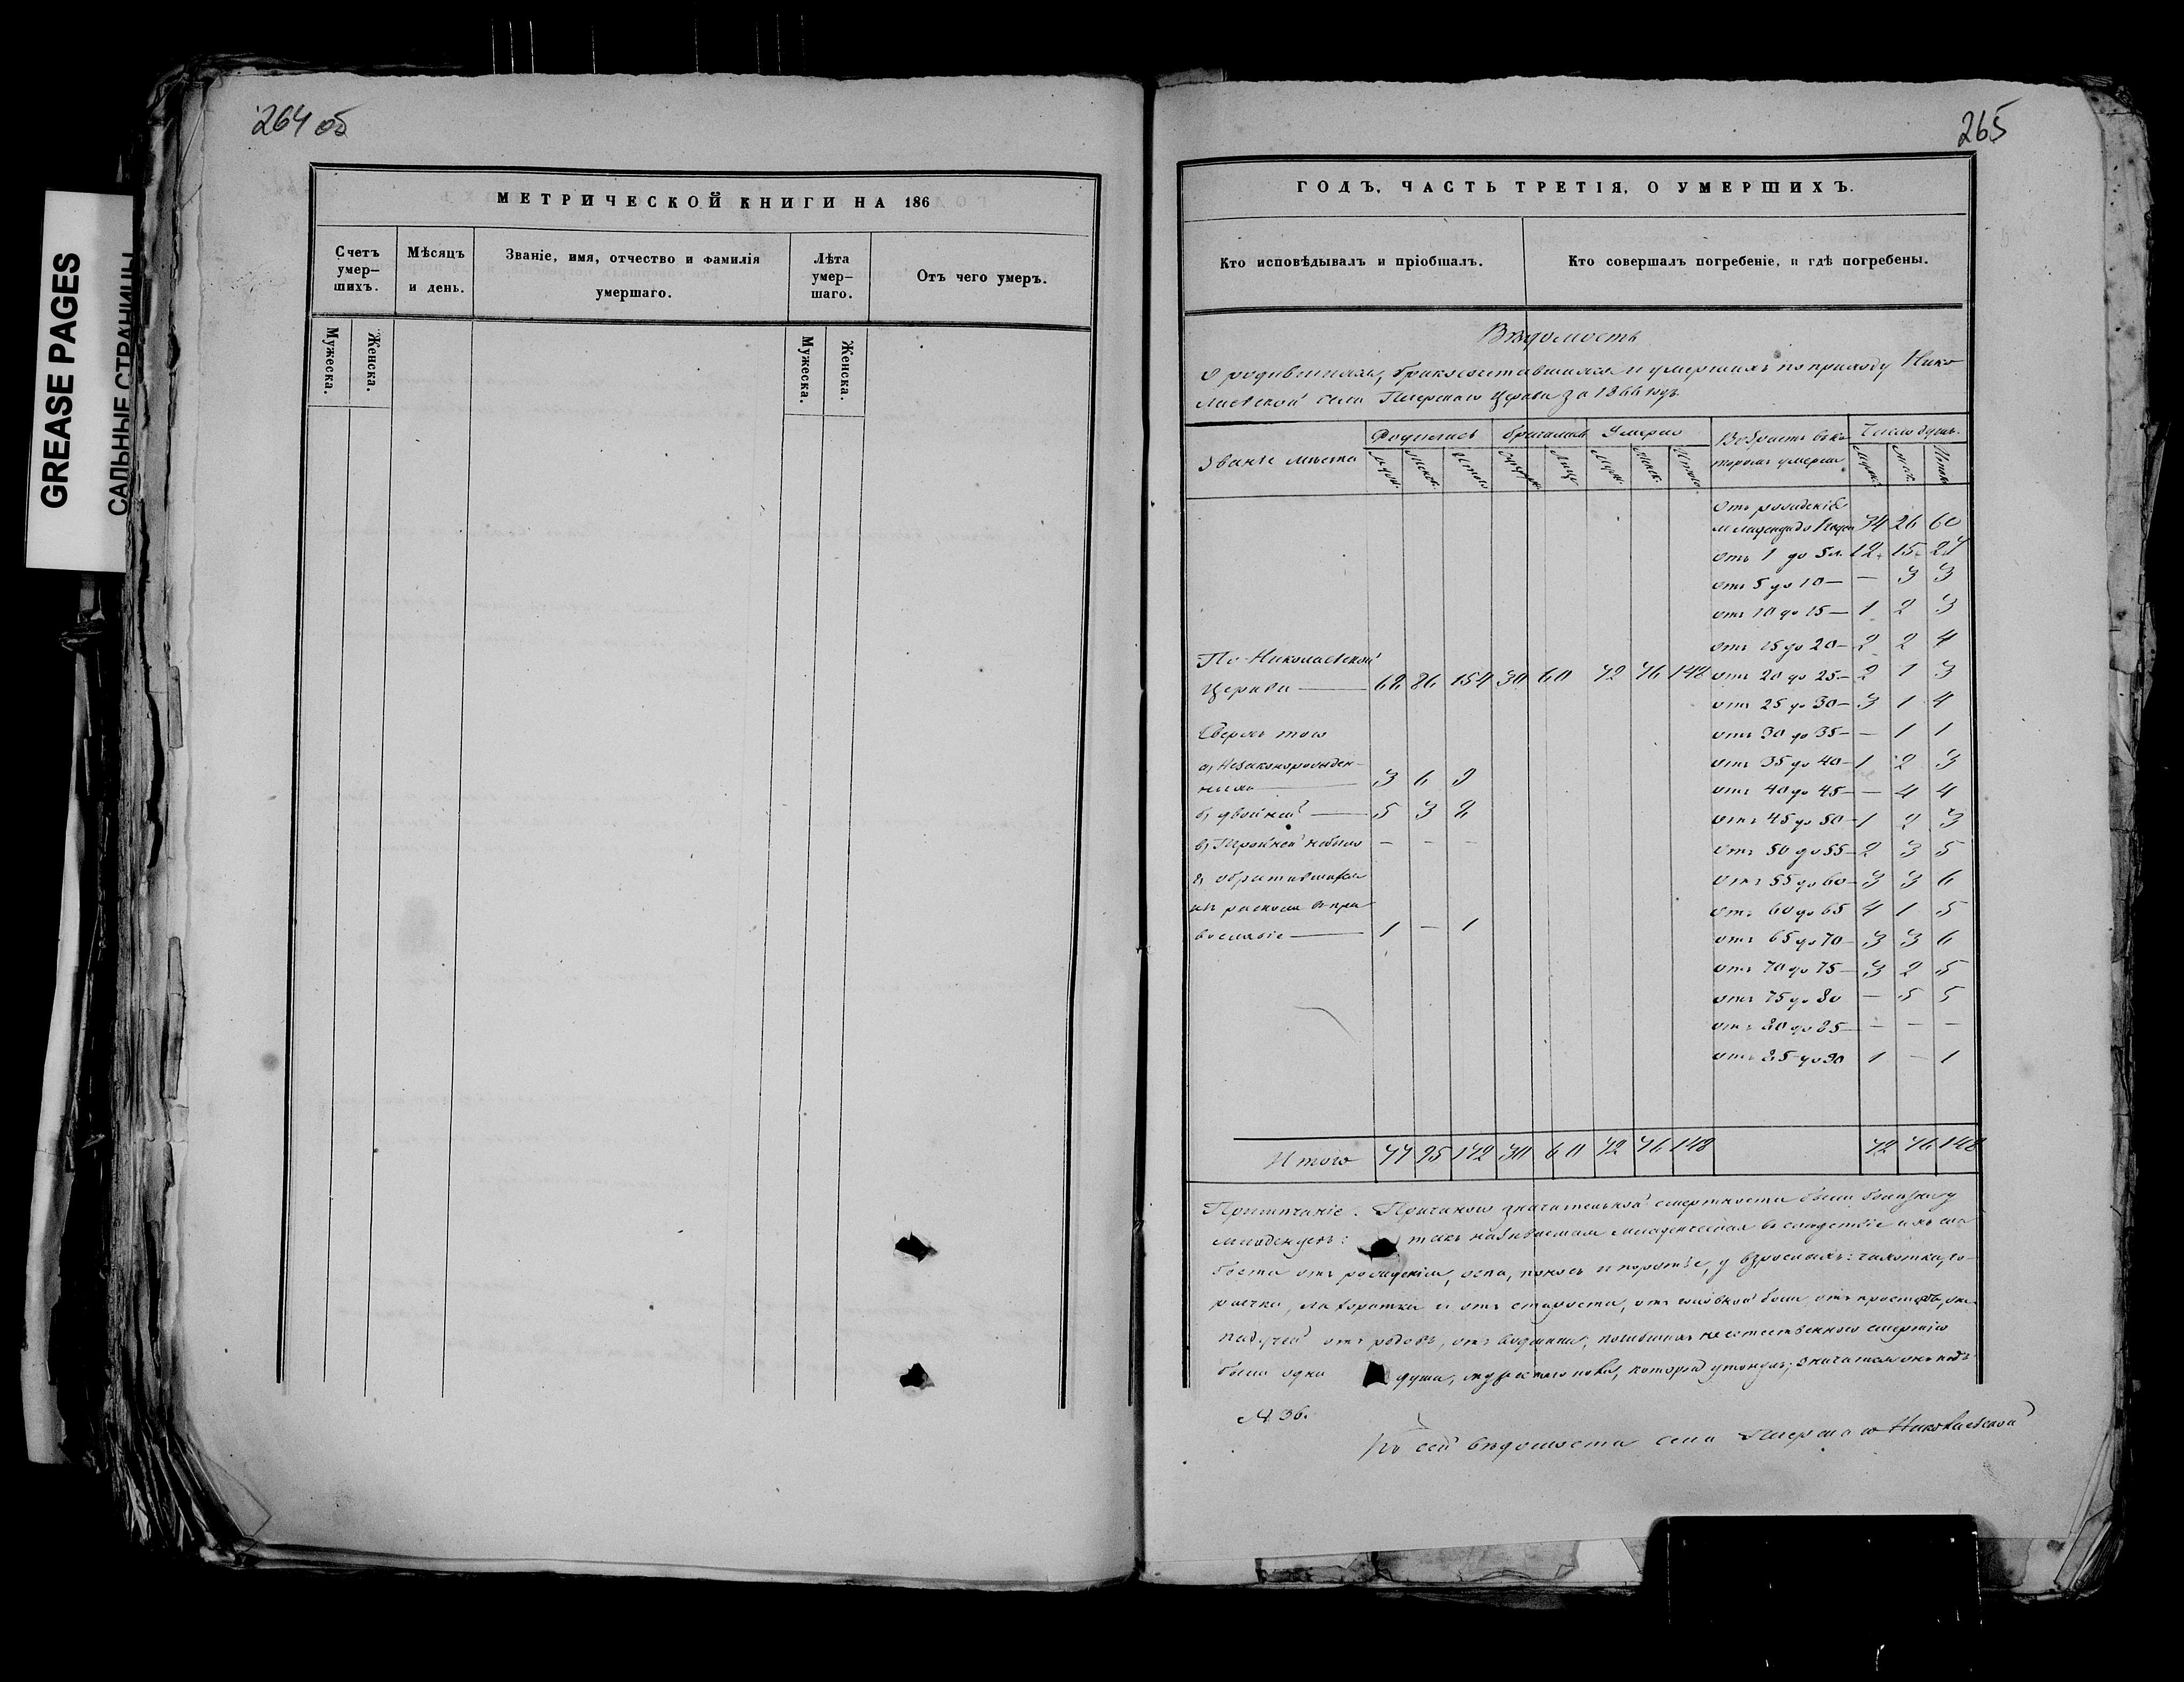 264 об
265
GREASE PAGES
САЛЬНЫЕ СТРАНИЦЫ
МЕТРИЧЕСКОЙ КНИГИ НА 186
Счетъ умер-шихъ.
Мѣсяцъ и день.
Званіе, имя, отчество и фамилія умершаго.
Лѣта умер-шаго.
Отъ чего умеръ.
Мужеска.
Женска.
Мужеска.
Женска.
ГОДЪ, ЧАСТЬ ТРЕТІЯ, О УМЕРШИХЪ.
Кто исповѣдывалъ и пріобщалъ.
Кто совершалъ погребеніе, и гдѣ погребены.
Вѣдомость
о родившихся, бракосочетавшихся и умершихъ по приходу Нико
лаевской села церкви за 1866 годъ
Званіе мѣста
Родились
Умерло
Возрастъ въ ко
торомъ умерли
Число душъ.
Отъ рожденія
младенца до 1 года 34 26 60
Отъ 1 до 5 л. 12. 15. 27
отъ 5 до 10 — — 3 3
отъ 10 до 15 — 1 2 3
отъ 15 до 20 — 2 2 4
По Николаевской
Церкви — 68 86 154 30 60 72 76 148 отъ 20 до 25 — 2 1 3
отъ 25 до 30 — 3 1 4
Сверхъ того отъ 30 до 35 — — 1 1
а, Незаконнорожден-
ныхъ — 3 6 9
отъ 35 до 40 — 1 2 3
отъ 40 до 45 — — 4 4
б, двойней — 5 3 8
отъ 45 до 50 — 1 2 3
в, Тройней небыло — — —
отъ 50 до 55 — 2 3 5
г, обратившихся
отъ 55 до 60 — 3 3 6
изъ раскола въ пра
отъ 60 до 65 4 1 5
вославіе — 1 — 1
отъ 65 до 70 — 3 3 6
отъ 70 до 75 — 3 2 5
отъ 75 до 80 — 5 5
отъ 80 до 85 — — — —
отъ 85 до 90 1 — 1
Итого 77 95 172 30 60 72 76 148 72 76 148
Примѣчаніе. Причиною значительной смертности были болѣзни у
младенцевъ: такъ называемая младенческая въ слѣдствіе ихъ сла
бости отъ рожденія, оспа, поносъ и у взрослыхъ: чахотка, го-
рячка, лихорадка и отъ старости, отъ головной боли отъ простуды, отъ
падучей отъ родовъ, отъ водянки, погибшихъ неестественною смертію
была одна душа, мужескаго пола, который утонулъ; значится онъ подъ
№ 36.
Къ сей вѣдомости села Николаевской